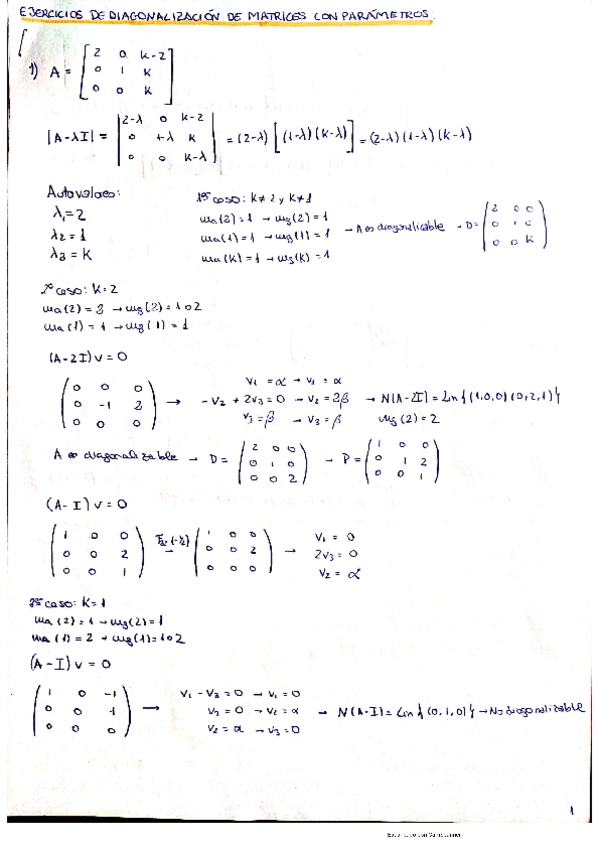 EJERCICIOS DE DIAGONALIZACIÓN DE MATRICES CON PARÁMETROS.
1) A = [2 0 k-2; 0 1 K; 0 0 K]
|A-λI| = |2-λ 0 k-2; 0 1-λ k; 0 0 k-λ| = (2-λ) [(1-λ)(k-λ)] = (2-λ)(1-λ)(k-λ)
Autovalores:
λ₁ = 2
λ₂ = 1
λ₃ = K
1er caso: K≠2 y K≠1
ma(2) = 1 → mg(2) = 1
ma(1) = 1 → mg(1) = 1 → A es diagonalizable → D = (2 0 0; 0 1 0; 0 0 K)
ma(K) = 1 → mg(K) = 1
2º caso: K=2
ma(2) = 2 → mg(2) = 1 o 2
ma(1) = 1 → mg(1) = 1
(A-2I)v = 0
(0 0 0; 0 -1 2; 0 0 0) →
v₁ = α → v₁ = α
-v₂ + 2v₃ = 0 → v₂ = 2β → N(A-2I) = Lin{(1,0,0)(0,2,1)}
v₃ = β → v₃ = β
mg(2) = 2
A es diagonalizable → D = (2 0 0; 0 1 0; 0 0 2) → P = (1 0 0; 0 1 2; 0 0 1)
(A-I)v = 0
(1 0 0; 0 0 2; 0 0 1) → (1 0 0; 0 0 2; 0 0 0) →
v₁ = 0
2v₃ = 0
v₂ = α
3er caso: K=1
ma(2) = 1 → mg(2) = 1
ma(1) = 2 → mg(1) = 1 o 2
(A-I)v = 0
(1 0 -1; 0 0 1; 0 0 0) →
v₁ - v₃ = 0 → v₁ = 0
v₃ = 0 → v₂ = α → N(A-I) = Lin{(0,1,0)} → No diagonalizable
v₂ = α → v₃ = 0
1